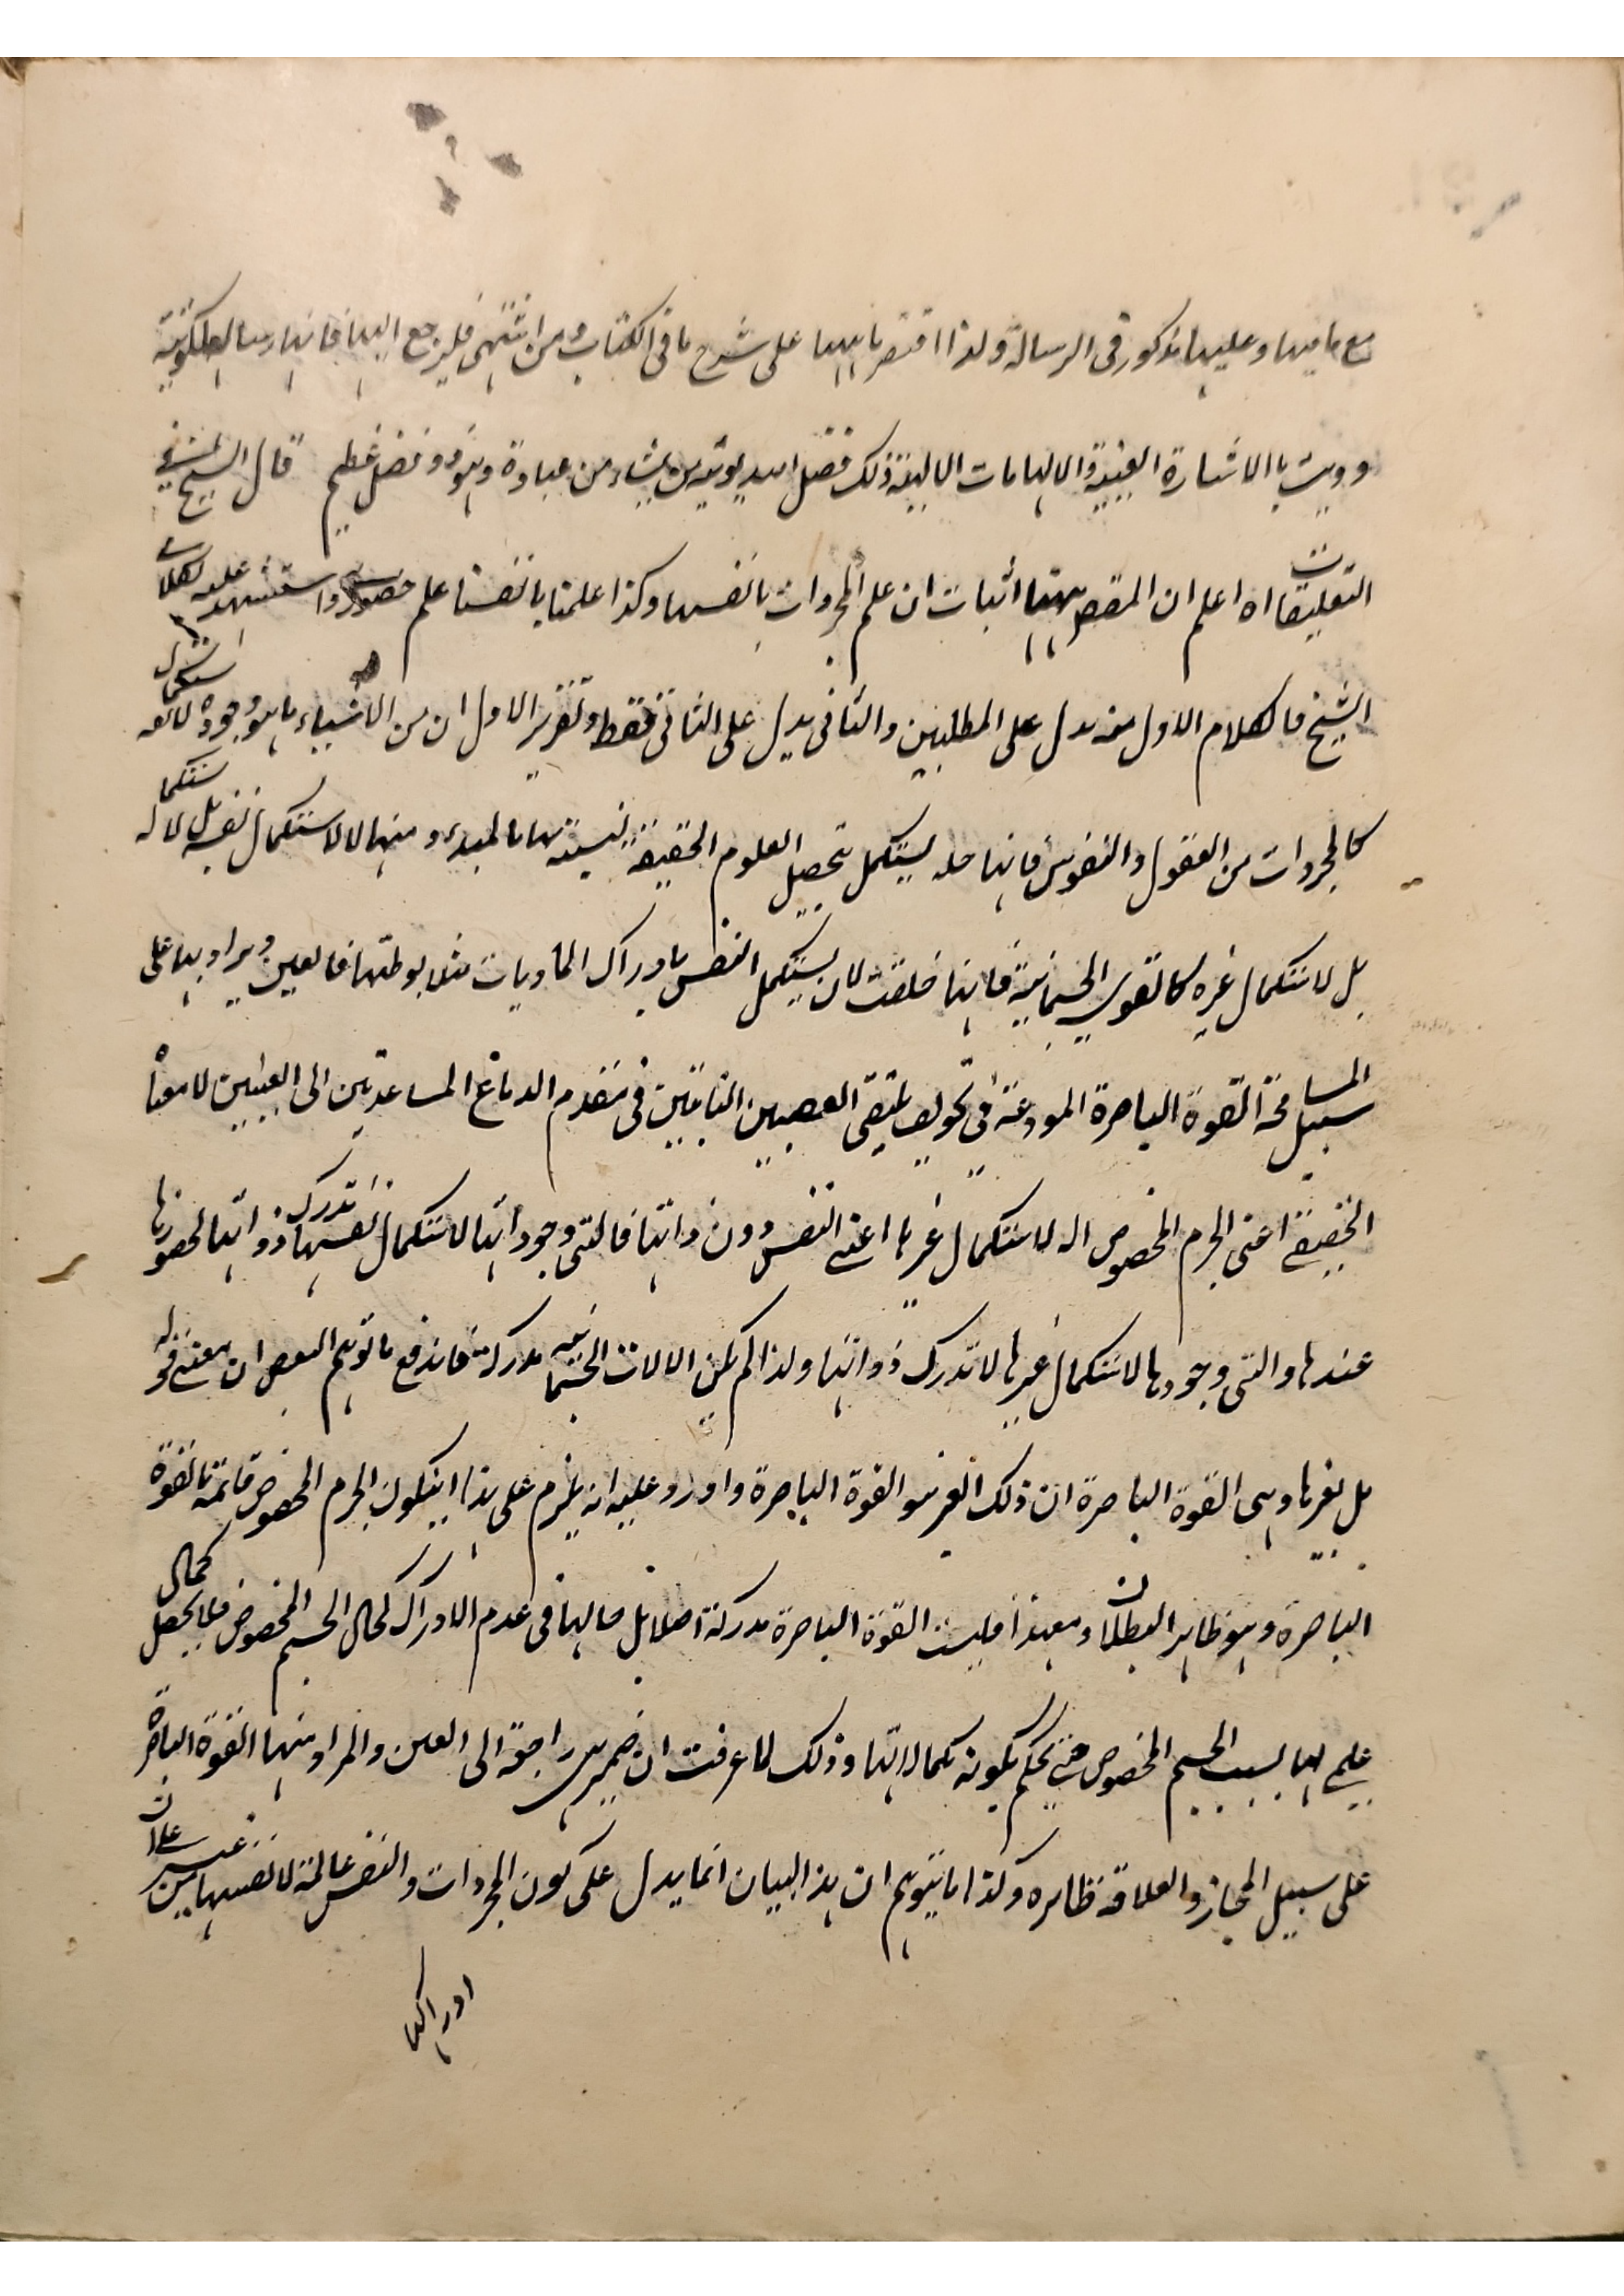 مع ما فيها وعليها مذكور فى الرسالة ولذا اقتصر ناههنا على شرح ما فى الكتاب ومن اشتهى فليرجع اليها فانها رسالة ملكوتية
وويت بالاشارة الغيبية والالهامات الالهية ذلك فضل الله يوتيه من يشاء من عباده وهو ذو فضل عظيم قال الشيخ فى
التعليقات اه اعلم ان المقصود ههنا اثبات ان علم المجردات بانفسها وكذا علمنا بانفسنا علم حضورى واستشهد عليه بكلامى
الشيخ فالكلام الاول منه يدل على المطلبين والثانى يدل على الثانى فقط وتقرير الاول ان من الاشياء ما هو وجوده لاستكمال
كالمجردات من العقول والنفوس فانها يستكمل بتحصيل العلوم الحقيقية بالمبدء ومنها لا لاستكمال نفسه
بل لاستكمال غيره كالقوى الجسمانية فانها خلقت لان يستكمل النفس بادراك الماديات مثلا بوساطتها فالعين ويراد بها على
سبيل المسامحة القوة الباصرة المودعة فى تجويف ملتقى العصبين النابتين فى مقدم الدماغ المساعدتين الى العينين لا معناه
الحقيقى اعنى الجرم المخصوص آلة لاستكمال غيرها اعنى النفس دون ذاتها فالتى وجوداتها لاستكمال انفسها تدرك ذواتها لحضورها
عندها والتى وجودها لاستكمال غيرها لا تدرك ذواتها ولذا لم يكن الالات الجسمانية مدركة فاندفع ما توهم البعض ان معنى قوله
بل لغيرها وهى القوة الباصرة ان ذلك الغير هو القوة الباصرة واورد عليه انه يلزم على هذا ان يكون الجرم المخصوص قائمة بالقوة
الباصرة وهو ظاهر البطلان ومع هذا فليست القوة الباصرة مدركة اصلا بل حالها فى عدم الادراك كحال الجسم المخصوص فلا يحصل كمال
علمى لها بسبب الجسم المخصوص حتى يحكم بكونه كمالا لها وذلك لما عرفت ان ضمير هى راجعة الى العين والمراد منها القوة الباصرة
على سبيل المجاز والعلاقة ظاهره وكذا ما يتوهم ان هذا البيان انما يدل على كون المجردات والنفس عالمة لانفسها من غير على ان
ادراكها